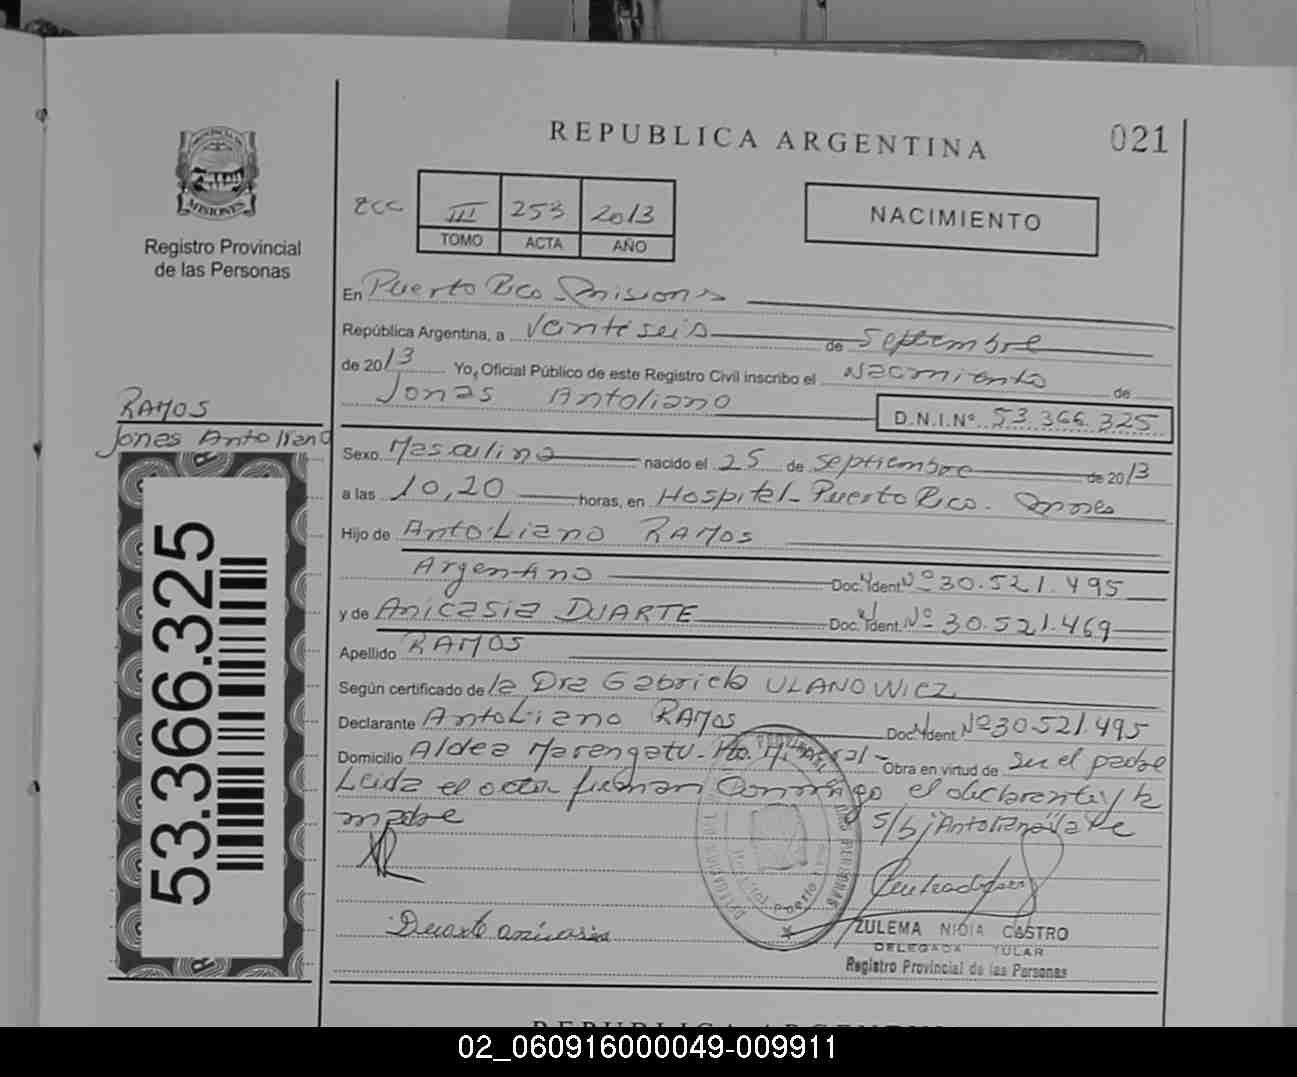 REPUBLICA ARGENTINA
021
PROVINCIA DE MISIONES
Registro Provincial
de las Personas
III 253 2013
TOMO ACTA AÑO
NACIMIENTO
En Puerto Rico Misiones
República Argentina, a Veintiseis de Septiembre
de 2013 Yo, Oficial Público de este Registro Civil inscribo el Nacimiento de
Jonas Antoliano D.N.I.Nº 53.366.325
RAMOS
Jonas Antoliano
53.366.325
Sexo Masculino nacido el 25 de septiembre de 2013
a las 10,20 horas, en Hospital Puerto Rico. Misiones
Hijo de Antoliano RAMOS
Argentino Doc. Ident. Nº 30.521.495
y de Anicasia DUARTE Doc. Ident. Nº 30.521.469
Apellido RAMOS
Según certificado de la Dra Gabriela ULANOWICZ
Declarante Antoliano RAMOS Doc. Ident. Nº 30.521.495
Domicilio Aldea Marangatu - Pto. Obra en virtud de Ser el padre
Leida el acta firman Conmigo el declarante y la
madre S/b/ Antoliano vale
Duarte anicasia
ZULEMA NIDIA CASTRO
DELEGADA TITULAR
Registro Provincial de las Personas
REPUBLICA ARGENTINA
02_060916000049-009911